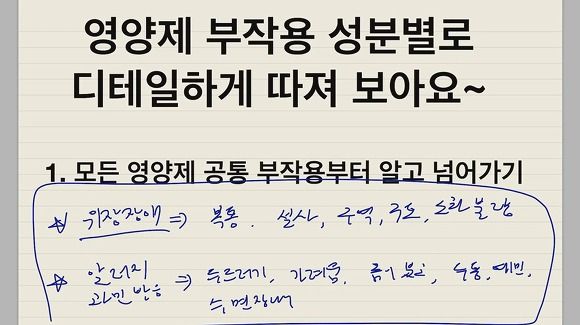 영양제 부작용 성분별로
디테일하게 따져 보아요~
1. 모든 영양제 공통 부작용부터 알고 넘어가기
☆ 위장장애 ⇒ 복통. 설사, 구역, 구토, 소화불량
☆ 알러지 ⇒ 두드러기, 가려움, 예민,
과민반응 수면장애